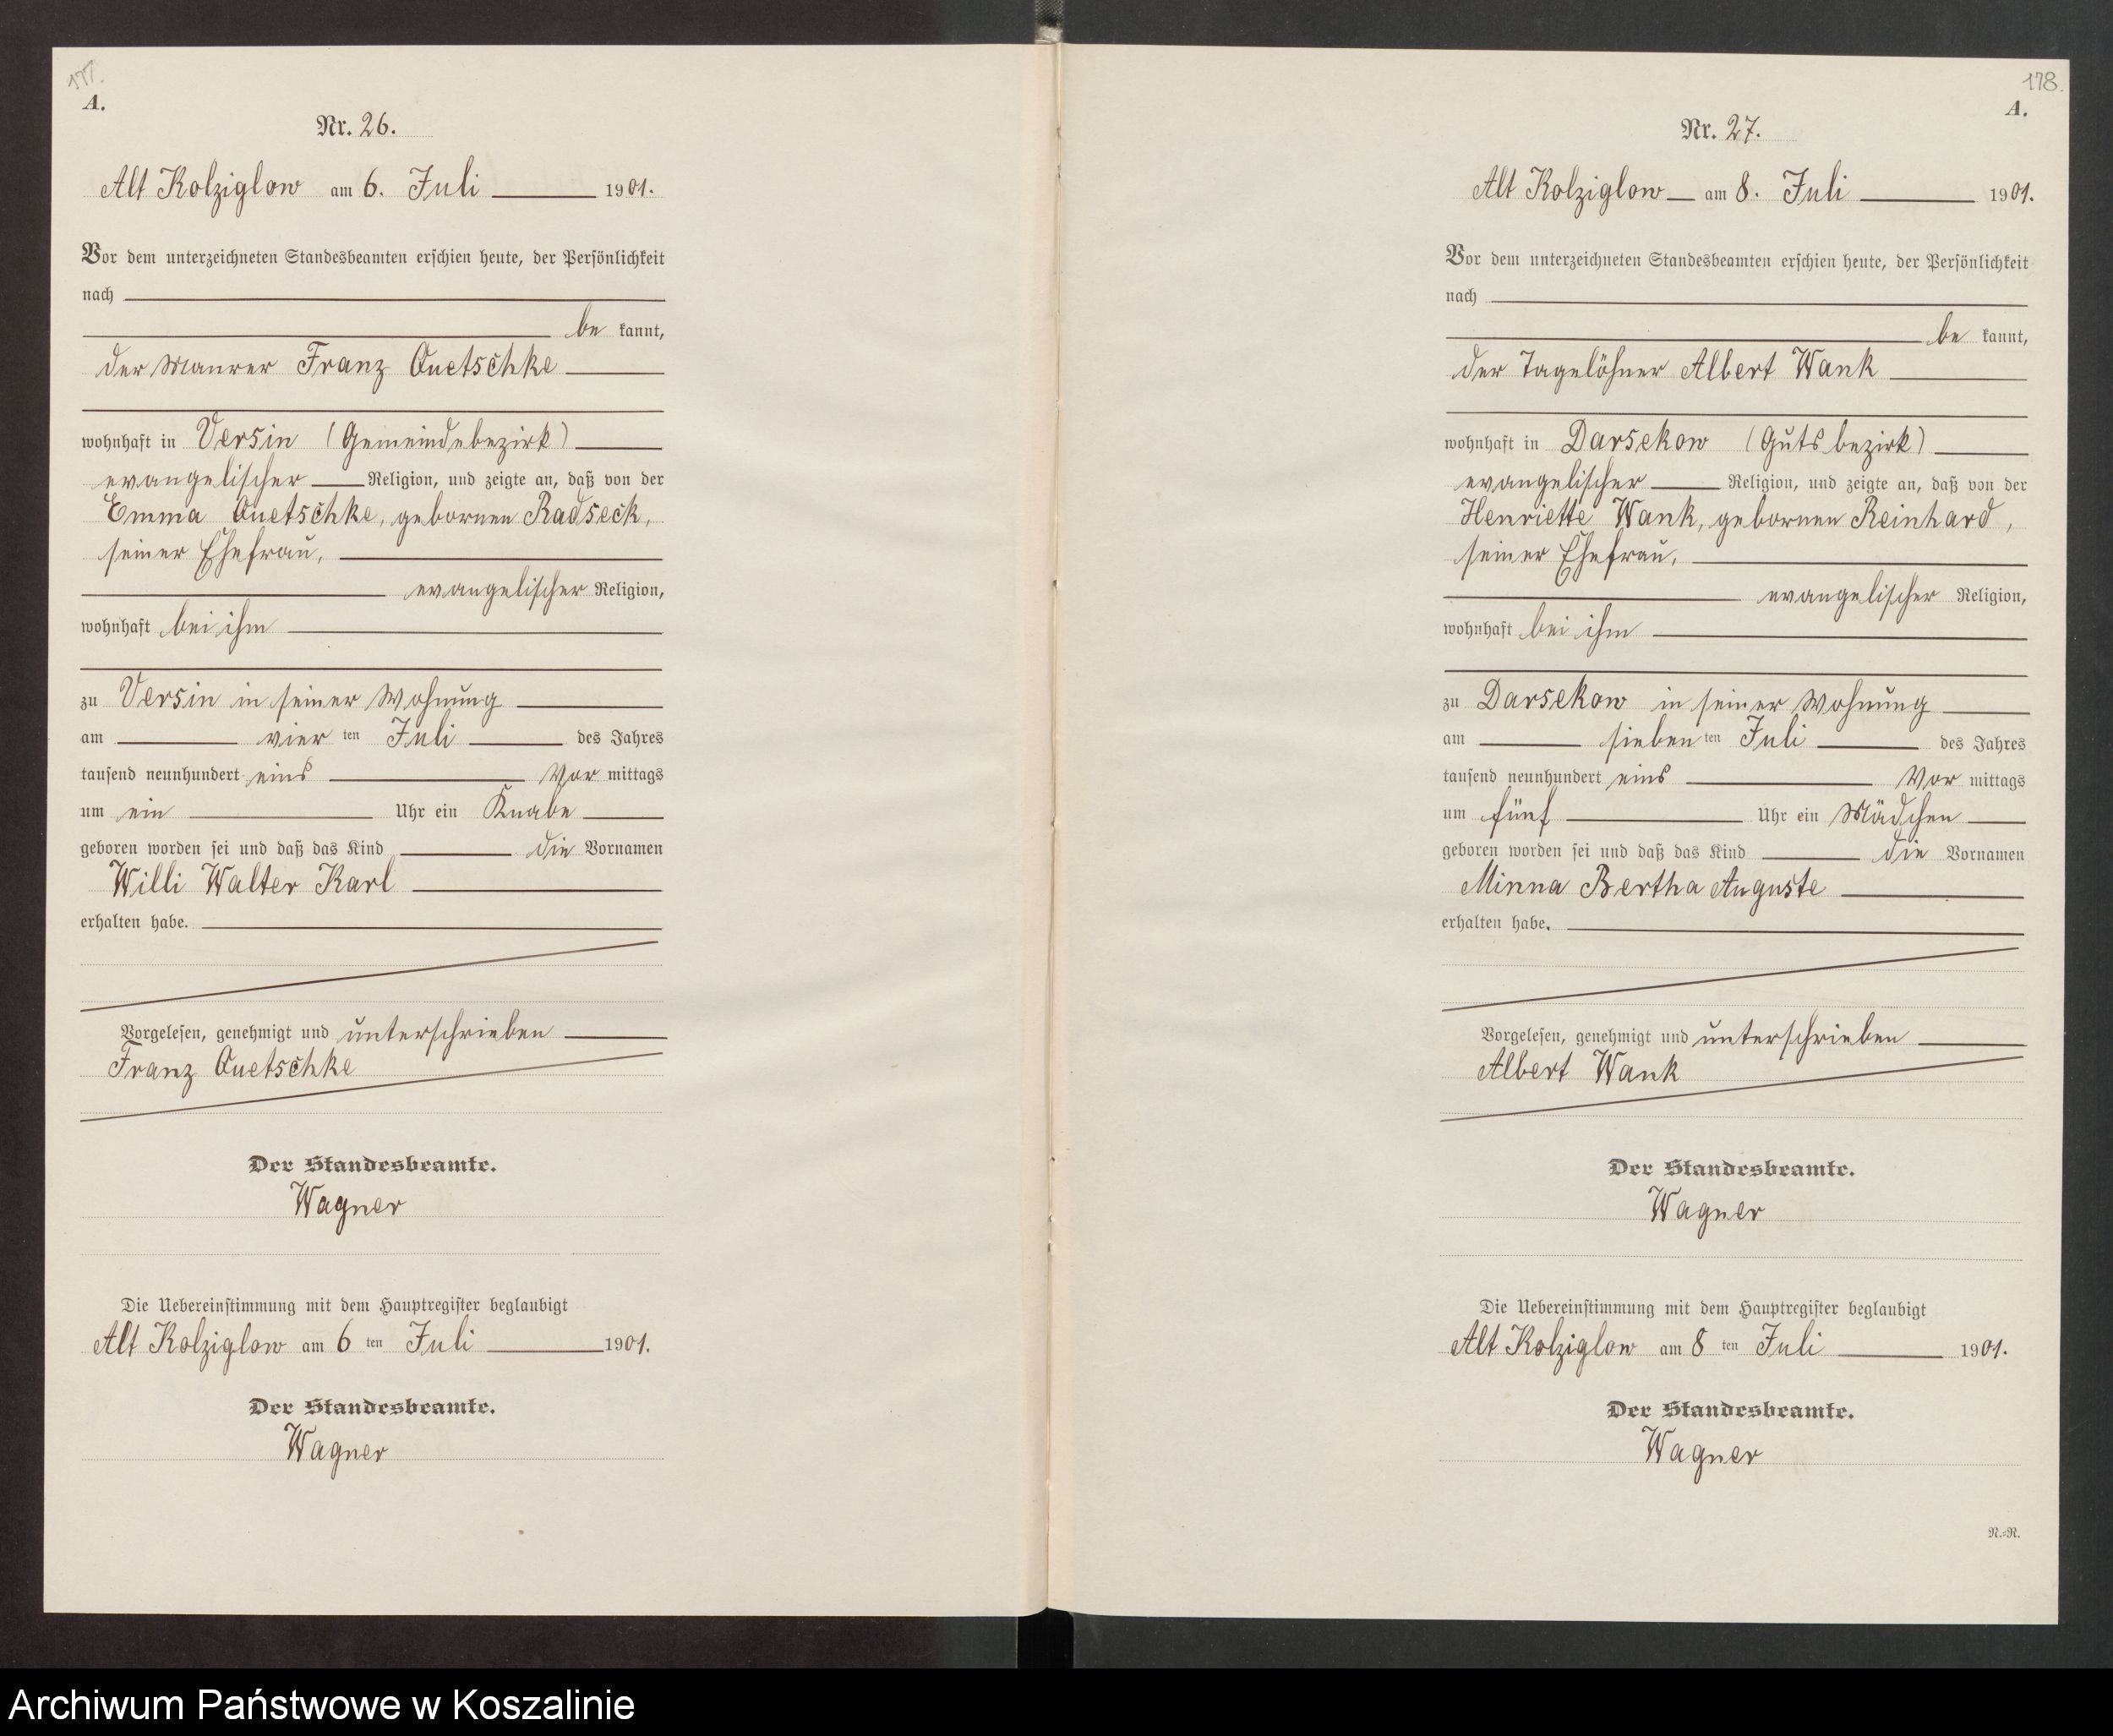 177.
A.
Nr. 26.
Alt Kolziglow am 6. Juli 1901.
Vor dem unterzeichneten Standesbeamten erschien heute, der Persönlichkeit
nach
be kannt,
der Maurer Franz Quetschke
wohnhaft in Versin (Gemeindebezirk)
evangelischer Religion, und zeigte an, daß von der
Emma Quetschke, gebornen Radseck,
seiner Ehefrau,
evangelischer Religion,
wohnhaft bei ihm
zu Versin in seiner Wohnung
am vier ten Juli des Jahres
tausend neunhundert eins Vor mittags
um ein Uhr ein Knabe
geboren worden sei und daß das Kind die Vornamen
Willi Walter Karl
erhalten habe.
Vorgelesen, genehmigt und unterschrieben
Franz Quetschke
Der Standesbeamte.
Wagner
Die Uebereinstimmung mit dem Hauptregister beglaubigt
Alt Kolziglow am 6 ten Juli 1901.
Der Standesbeamte.
Wagner
178.
A.
Nr. 27.
Alt Kolziglow am 8. Juli 1901.
Vor dem unterzeichneten Standesbeamten erschien heute, der Persönlichkeit
nach
be kannt,
der Tagelöhner Albert Wank
wohnhaft in Darsekow (Gutsbezirk)
evangelischer Religion, und zeigte an, daß von der
Henriette Wank, gebornen Reinhard,
seiner Ehefrau,
evangelischer Religion,
wohnhaft bei ihm
zu Darsekow in seiner Wohnung
am sieben ten Juli des Jahres
tausend neunhundert eins Vor mittags
um fünf Uhr ein Mädchen
geboren worden sei und daß das Kind die Vornamen
Minna Bertha Auguste
erhalten habe.
Vorgelesen, genehmigt und unterschrieben
Albert Wank
Der Standesbeamte.
Wagner
Die Uebereinstimmung mit dem Hauptregister beglaubigt
Alt Kolziglow am 8 ten Juli 1901.
Der Standesbeamte.
Wagner
N.=R.
Archiwum Państwowe w Koszalinie